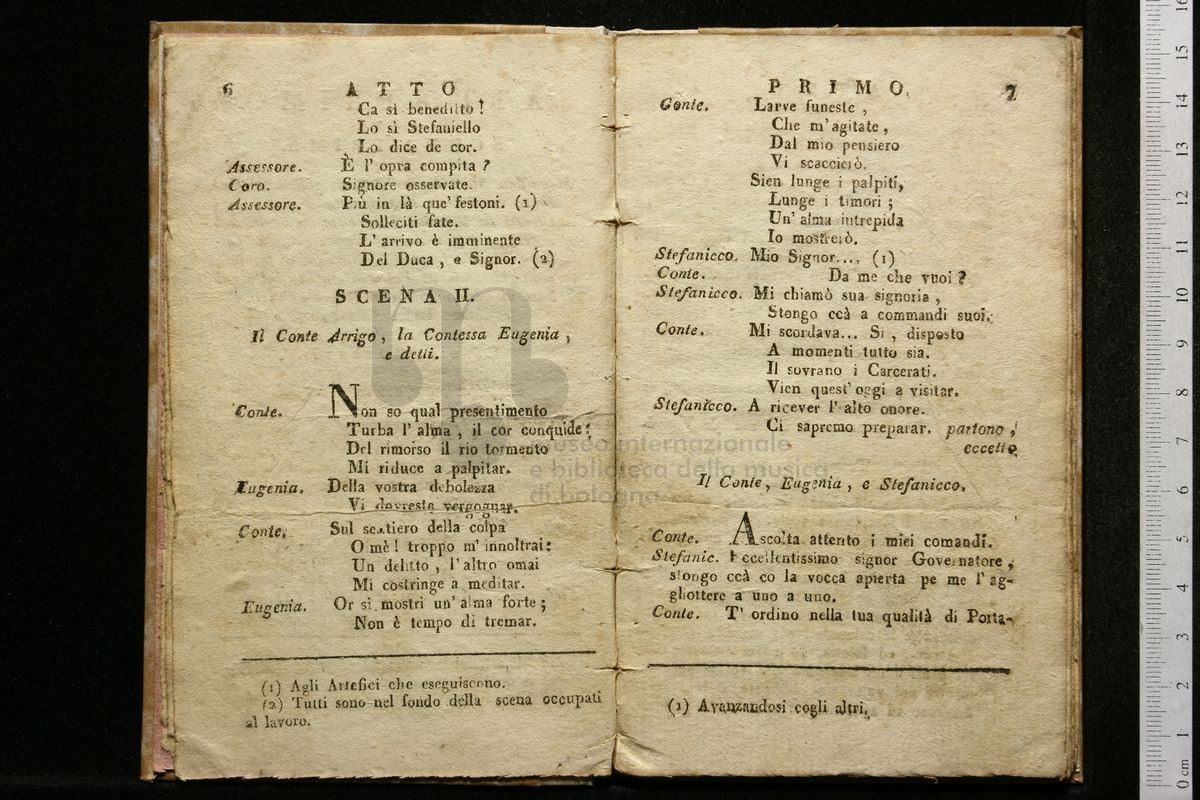 6 ATTO
Ca sì beneditto!
Lo sì Stefaniello
Lo dice de cor.
Assessore. È l' opra compita?
Coro. Signore osservate.
Assessore. Più in là que' festoni. (1)
Solleciti fate.
L' arrivo è imminente
Del Duca, e Signor. (2)
SCENA II.
Il Conte Arrigo, la Contessa Eugenia,
e detti.
Conte. Non so qual presentimento
Turba l' alma, il cor conquide:
Del rimorso il rio tormento
Mi riduce a palpitar.
Eugenia. Della vostra debolezza
Vi dovreste vergognar.
Conte. Sul sentiero della colpa
Omè! troppo m' innoltrai:
Un delitto, l' altro omai
Mi costringe a meditar.
Eugenia. Or si mostri un' alma forte;
Non è tempo di tremar.
(1) Agli Artefici che eseguiscono.
(2) Tutti sono nel fondo della scena occupati
al lavoro.
PRIMO. 7
Conte. Larve funeste,
Che m' agitate,
Dal mio pensiero
Vi scaccierò.
Sien lunge i palpiti,
Lunge i timori;
Un' alma intrepida
Io mostrerò.
Stefanicco. Mio Signor.... (1)
Conte. Da me che vuoi?
Stefanicco. Mi chiamò sua signoria,
Stongo ccà a commandi suoi.
Conte. Mi scordava... Si, disposto
A momenti tutto sia.
Il sovrano i Carcerati.
Vien quest' oggi a visitar.
Stefanicco. A ricever l' alto onore.
Ci sapremo preparar. partono,
eccetto
Il Conte, Eugenia, e Stefanicco.
Conte. Ascolta attento i miei comandi.
Stefanic. Eccellentissimo signor Governatore,
stongo ccà co la vocca apierta pe me l' ag-
ghiottere a uno a uno.
Conte. T' ordino nella tua qualità di Porta-
(1) Avanzandosi cogli altri.
museo internazionale
e biblioteca della musica
di bologna
0 cm 1 2 3 4 5 6 7 8 9 10 11 12 13 14 15 16